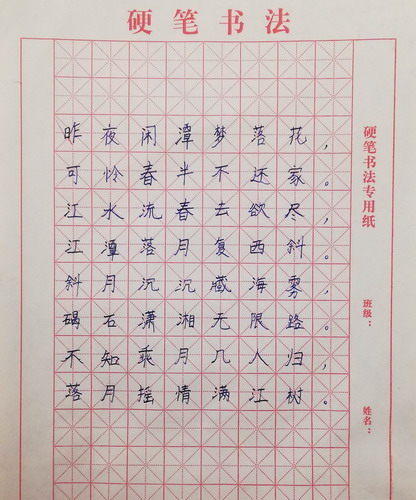 硬笔书法
昨夜闲潭梦落花，
可怜春半不还家。
江水流春去欲尽，
江潭落月复西斜。
斜月沉沉藏海雾，
碣石潇湘无限路。
不知乘月几人归，
落月摇情满江树。
硬笔书法专用纸
班级：
姓名：